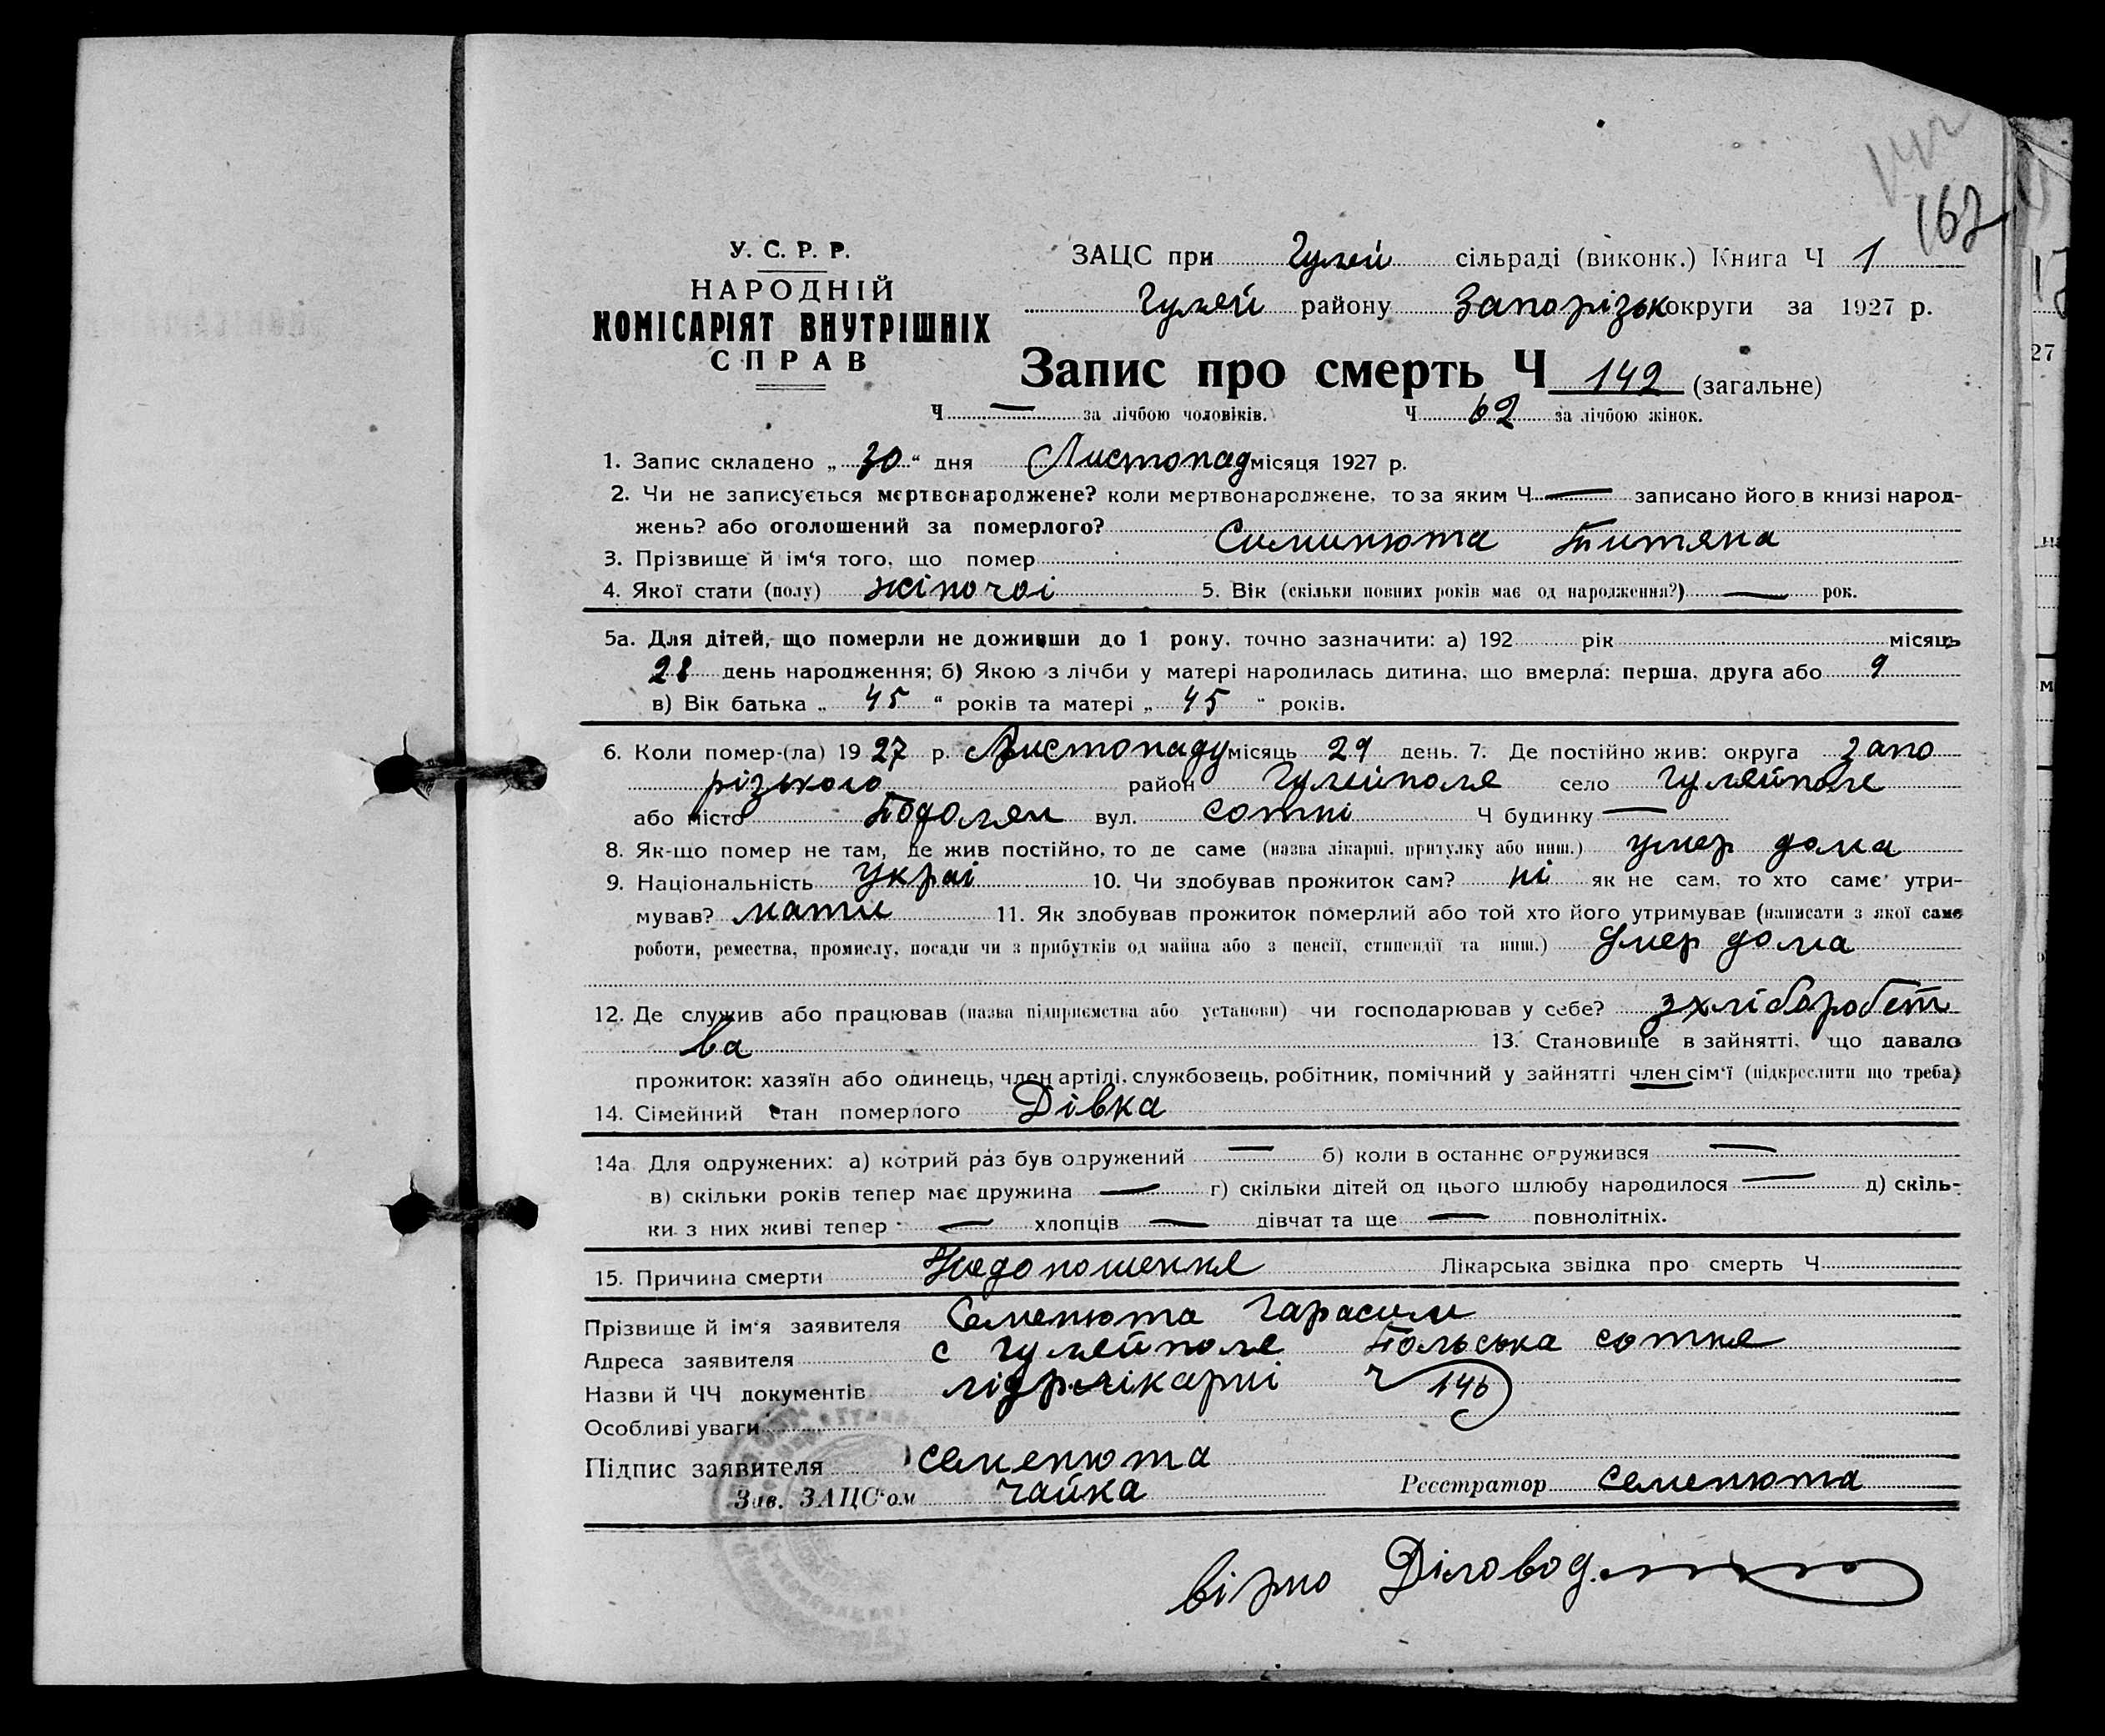 162
У. С. Р. Р.
НАРОДНІЙ
КОМІСАРІЯТ ВНУТРІШНІХ
СПРАВ
ЗАЦС при Гуляй сільраді (виконк.) Книга Ч 1
Гуляй району Запорізьк округи за 1927 р.
Запис про смерть Ч 142 (загальне)
Ч — за лічбою чоловіків. Ч 62 за лічбою жінок.
1. Запис складено „ 30 “ дня Листопад місяця 1927 р.
2. Чи не записується мертвонароджене? коли мертвонароджене, то за яким Ч — записано його в книзі народ-
жень? або оголошений за померлого?
3. Прізвище й ім‘я того, що помер Симинюта Титяна
4. Якої стати (полу) жіночоі 5. Вік (скільки повних років має од народження?) — рок.
5а. Для дітей, що померли не доживши до 1 року, точно зазначити: а) 192 рік місяць
28 день народження; б) Якою з лічби у матері народилась дитина, що вмерла: перша, друга або 9
в) Вік батька „ 45 “ років та матері „ 45 “ років.
6. Коли помер-(ла) 19 27 р. Листопаду місяць 29 день. 7. Де постійно жив: округа Запо
різького район Гуляйполя село Гуляйполе
або місто Подолян вул. сотні Ч будинку —
8. Як-що помер не там, де жив постійно, то де саме (назва лікарні, притулку або инш.) умер дома
9. Національність Украі 10. Чи здобував прожиток сам? ні як не сам, то хто саме утри-
мував? мати 11. Як здобував прожиток померлий або той хто його утримував (написати з якої саме
роботи, ремества, промислу, посади чи з прибутків од майна або з пенсії, стипендії та инш.) Умер дома
12. Де служив або працював (назва підприємства або установи) чи господарював у себе? зхліборобст
ва 13. Становище в зайнятті, що давало
прожиток: хазяїн або одинець, член артілі, службовець, робітник, помічний у зайнятті член сім‘ї (підкреслити що треба)
14. Сімейний стан померлого Дівка
14а. Для одружених: а) котрий раз був одружений — б) коли в останнє одружився —
в) скільки років тепер має дружина — г) скільки дітей од цього шлюбу народилося — д) скіль-
ки з них живі тепер — хлопців — дівчат та ще — повнолітніх.
15. Причина смерти Недоношення Лікарська звідка про смерть Ч
Прізвище й ім‘я заявителя Семенюта Гарасим
Адреса заявителя с Гуляйполе Польська сотня
Назви й ЧЧ документів лікарні Ч 146
Особливі уваги
Підпис заявителя Семенюта
Зав. ЗАЦС‘ом Чайка Реєстратор Семенюта
вірно Діловод